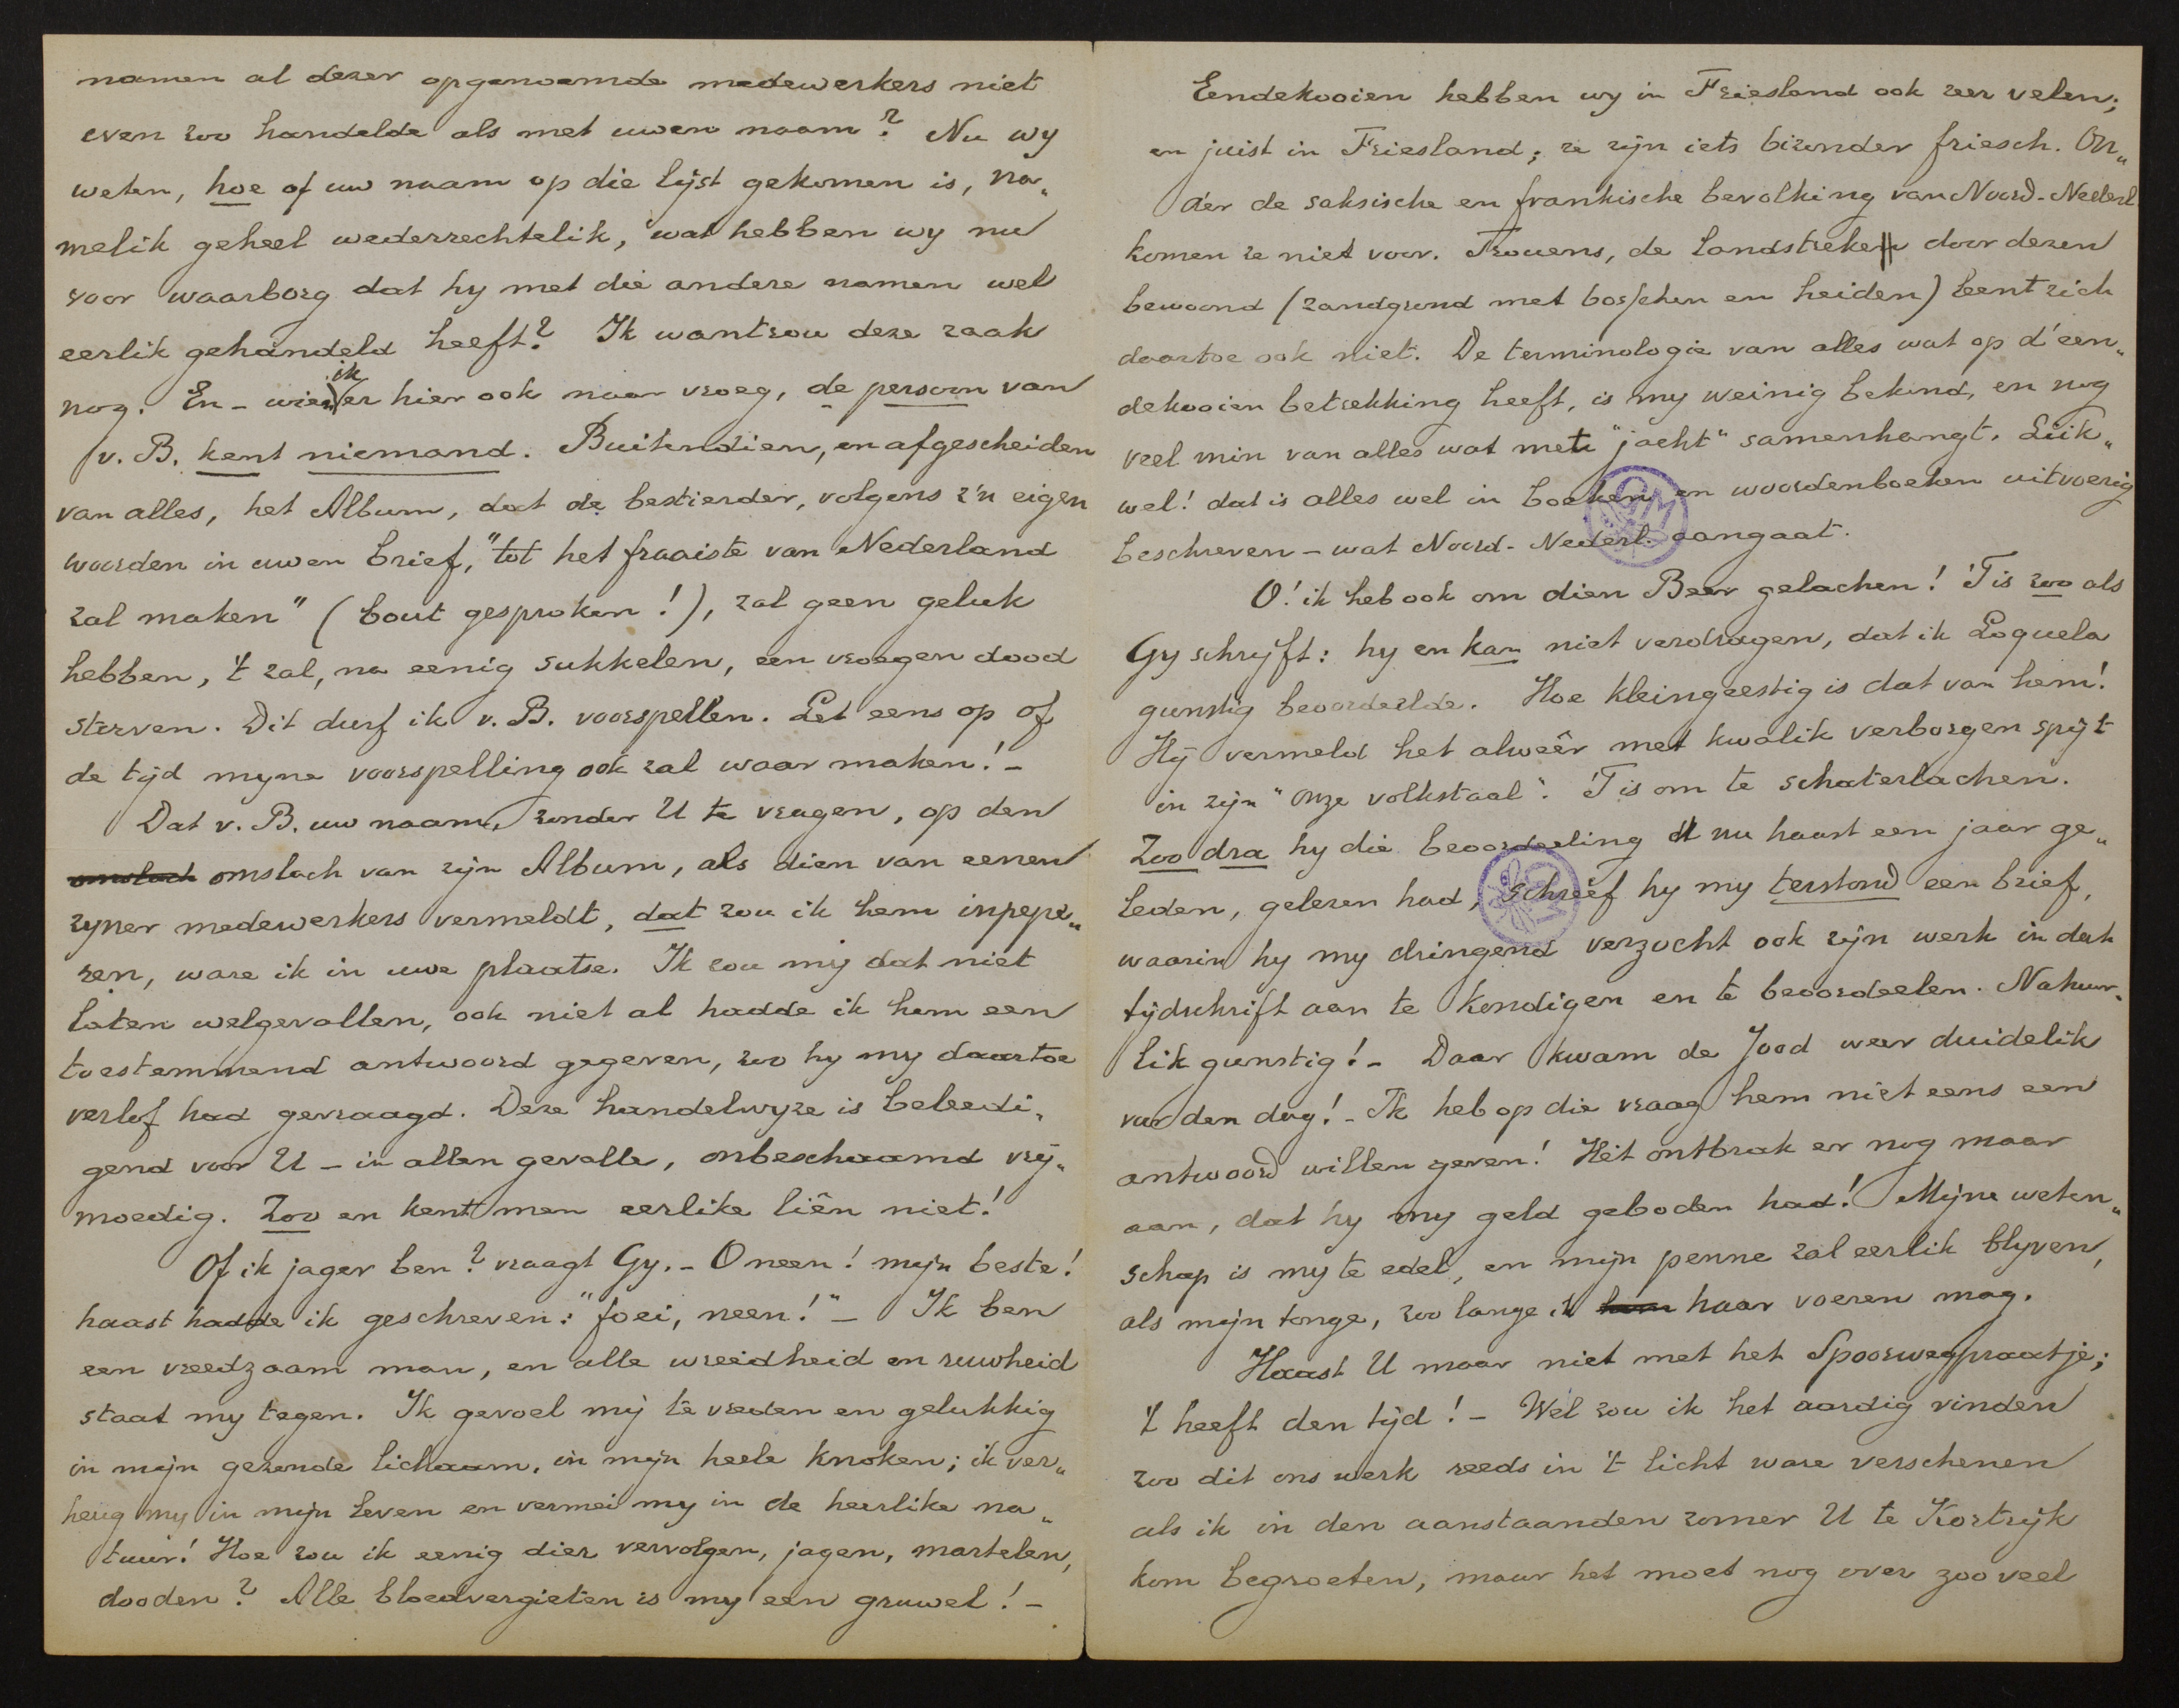 namen al dezer opgenoemde medewerkers niet
even zoo handelde als met uwen naam? Nu wy
weten, hoe of uw naam op die lijst gekomen is, na„
melik geheel wederrechtelik, wat hebben wy nu
voor waarborg dat hy met die andere namen wel
eerlik gehandeld heeft? Ik wantrou deze zaak
nog. En - wien ik er hier ook naar vroeg, de persoon van
v. B. kent niemand. Buitendien, en afgescheiden
van alles, het Album, dat de bestierder, volgens z'n eigen
woorden in uwen brief, "tot het fraaiste van Nederland
zal maken" (bout gesproken!), zal geen geluk
hebben, 't zal, na eenig sukkelen, een vroegen dood
sterven. Dit durf ik v. B. voorspellen. Let eens op of
de tijd myne voorspelling ook zal waar maken! -
Dat v. B. uw naam, zonder U te vragen, op den
omslach omslach van zijn Album, als dien van eenen
zyner medewerkers vermeldt, dat zou ik hem inpepe„
ren, ware ik in uwe plaatse. Ik zou mij dat niet
laten welgevallen, ook niet al hadde ik hem een
toestemmend antwoord gegeven, zoo hy my daartoe
verlof had gevraagd. Deze handelwyze is beleedi„
gend voor U - in allen gevalle, onbeschaamd vrij„
moedig. Zoo en kent men eerlike liên niet!
Of ik jager ben? vraagt Gy. - O neen! mijn beste!
haast hadde ik geschreven: "foei, neen!" - Ik ben
een vreedzaam man, en alle wreedheid en ruwheid
staat my tegen. Ik gevoel mij te vreden en gelukkig
in mijn gezonde lichaam, in mijn heele knoken; ik ver„
heug my in mijn leven en vermei my in de heerlike na„
tuur! Hoe zou ik eenig dier vervolgen, jagen, martelen,
dooden? Alle bloedvergieten is my een gruwel! -
Eendekooien hebben wy in Friesland ook zeer velen;
en juist in Friesland; ze zijn iets bizonder friesch. On„
der de saksische en frankische bevolking van Noord-Nederl
komen ze niet voor. Trouens, de landstreken door dezen
bewoond (zandgrond met bosschen en heiden) leent zich
daartoe ook niet. De terminologie van alles wat op d'een„
dekooien betrekking heeft, is my weinig bekend, en nog
veel min van alles wat met "jacht" samenhangt. Luk„
wel! dat is alles wel in boeken en woordenboeken uitvoerig
beschreven - wat Noord-Nederl. aangaat.
O! ik heb ook om dien Beer gelachen! 'T is zoo als
Gy schrijft: hy en kan niet verdragen, dat ik Loquela
gunstig beoordeelde. Hoe kleingeestig is dat van hem!
Hij vermeld het alweêr met kwalik verborgen spijt
in zijn "Onze volkstaal". 'T is om te schaterlachen.
Zoo dra hy die beoordeeling nu haast een jaar ge„
leden, gelezen had, schreef hy my terstond een brief,
waarin hy my dringend verzocht ook zijn werk in dat
tijdschrift aan te kondigen en te beoordeelen. Natuur„
lik gunstig! - Daar kwam de Jood weer duidelik
voor den dag! - Ik heb op die vraag hem niet eens een
antwoord willen geven! Het ontbrak er nog maar
aan, dat hy my geld geboden had! Mijne weten„
schap is my te edel, en mijn penne zal eerlik blyven,
als mijn tonge, zoo lange ik haar voeren mag.
Haast U maar niet met het Spoorwegpraatje;
't heeft den tijd! - Wel zou ik het aardig vinden
zoo dit ons werk reeds in 't licht ware verschenen
als ik in den aanstaanden zomer U te Kortrijk
kom begroeten, maar het moet nog over zoo veel